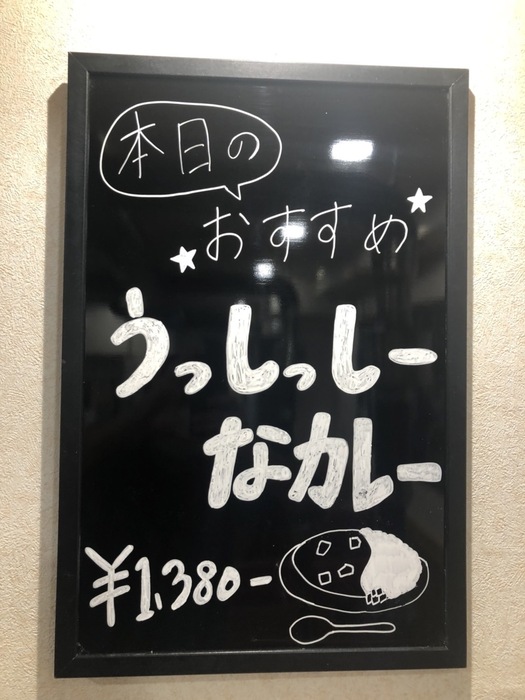 本日の
おすすめ
うっしっしー
なカレー
¥1,380-